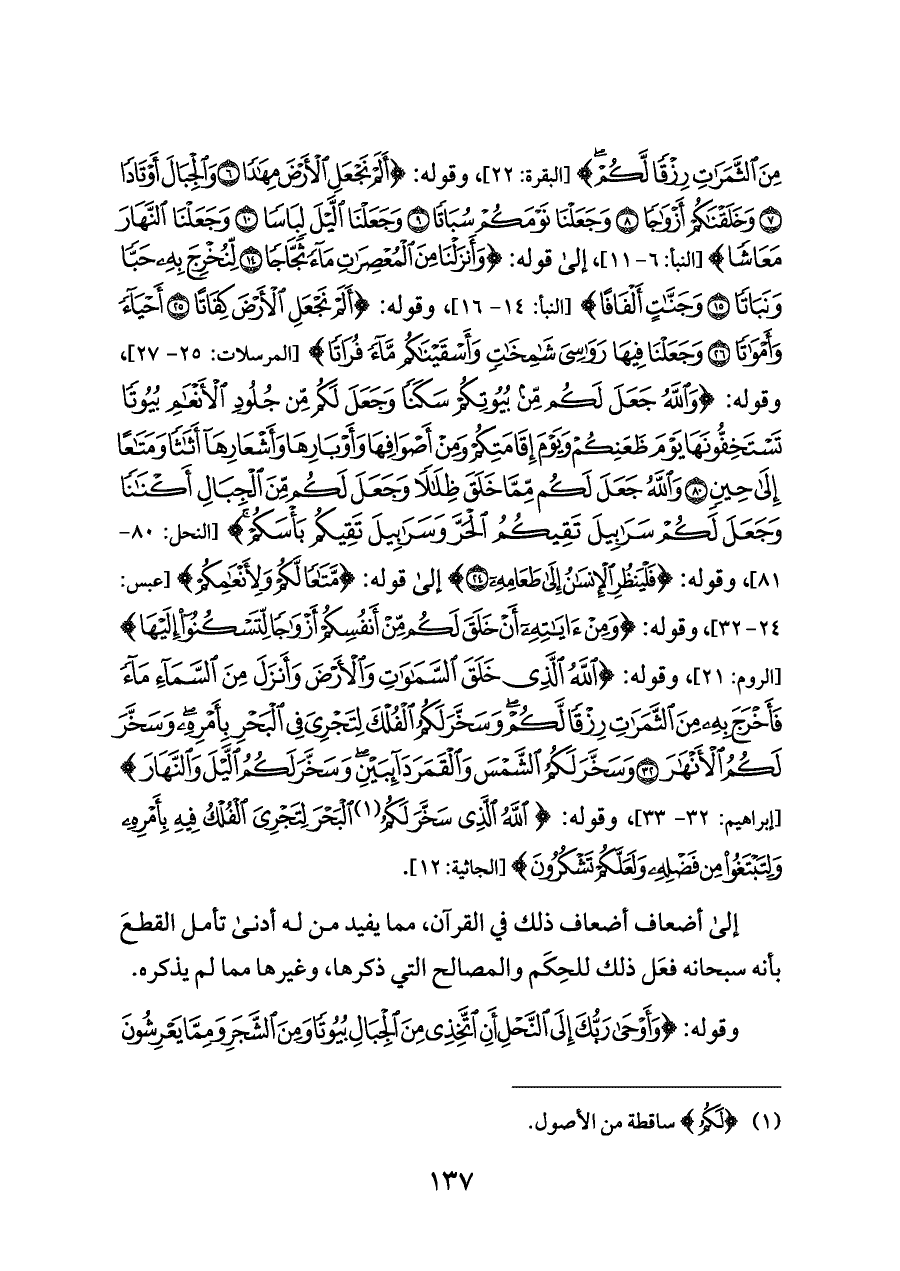 مِنَ ٱلثَّمَرَٰتِ رِزْقًا لَّكُمْ ۖ﴾ [البقرة: ٢٢]، وقوله: ﴿أَلَمْ نَجْعَلِ ٱلْأَرْضَ مِهَٰدًا ۝٦ وَٱلْجِبَالَ أَوْتَادًا
۝٧ وَخَلَقْنَٰكُمْ أَزْوَٰجًا ۝٨ وَجَعَلْنَا نَوْمَكُمْ سُبَاتًا ۝٩ وَجَعَلْنَا ٱلَّيْلَ لِبَاسًا ۝١٠ وَجَعَلْنَا ٱلنَّهَارَ
مَعَاشًا﴾ [النبأ: ٦- ١١]، إلىٰ قوله: ﴿وَأَنزَلْنَا مِنَ ٱلْمُعْصِرَٰتِ مَآءً ثَجَّاجًا ۝١٤ لِّنُخْرِجَ بِهِۦ حَبًّا
وَنَبَاتًا ۝١٥ وَجَنَّٰتٍ أَلْفَافًا﴾ [النبأ: ١٤- ١٦]، وقوله: ﴿أَلَمْ نَجْعَلِ ٱلْأَرْضَ كِفَاتًا ۝٢٥ أَحْيَآءً
وَأَمْوَٰتًا ۝٢٦ وَجَعَلْنَا فِيهَا رَوَٰسِىَ شَٰمِخَٰتٍ وَأَسْقَيْنَٰكُم مَّآءً فُرَاتًا﴾ [المرسلات: ٢٥- ٢٧]،
وقوله: ﴿وَٱللَّهُ جَعَلَ لَكُم مِّنۢ بُيُوتِكُمْ سَكَنًا وَجَعَلَ لَكُم مِّن جُلُودِ ٱلْأَنْعَٰمِ بُيُوتًا
تَسْتَخِفُّونَهَا يَوْمَ ظَعْنِكُمْ وَيَوْمَ إِقَامَتِكُمْ وَمِنْ أَصْوَافِهَا وَأَوْبَارِهَا وَأَشْعَارِهَآ أَثَٰثًا وَمَتَٰعًا
إِلَىٰ حِينٍ ۝٨٠ وَٱللَّهُ جَعَلَ لَكُم مِّمَّا خَلَقَ ظِلَٰلًا وَجَعَلَ لَكُم مِّنَ ٱلْجِبَالِ أَكْنَٰنًا
وَجَعَلَ لَكُمْ سَرَٰبِيلَ تَقِيكُمُ ٱلْحَرَّ وَسَرَٰبِيلَ تَقِيكُم بَأْسَكُمْ ۚ﴾ [النحل: ٨٠-
٨١]، وقوله: ﴿فَلْيَنظُرِ ٱلْإِنسَٰنُ إِلَىٰ طَعَامِهِۦٓ ۝٢٤﴾ إلىٰ قوله: ﴿مَّتَٰعًا لَّكُمْ وَلِأَنْعَٰمِكُمْ﴾ [عبس:
٢٤- ٣٢]، وقوله: ﴿وَمِنْ ءَايَٰتِهِۦٓ أَنْ خَلَقَ لَكُم مِّنْ أَنفُسِكُمْ أَزْوَٰجًا لِّتَسْكُنُوٓا۟ إِلَيْهَا﴾
[الروم: ٢١]، وقوله: ﴿ٱللَّهُ ٱلَّذِى خَلَقَ ٱلسَّمَٰوَٰتِ وَٱلْأَرْضَ وَأَنزَلَ مِنَ ٱلسَّمَآءِ مَآءً
فَأَخْرَجَ بِهِۦ مِنَ ٱلثَّمَرَٰتِ رِزْقًا لَّكُمْ ۖ وَسَخَّرَ لَكُمُ ٱلْفُلْكَ لِتَجْرِىَ فِى ٱلْبَحْرِ بِأَمْرِهِۦ ۖ وَسَخَّرَ
لَكُمُ ٱلْأَنْهَٰرَ ۝٣٢ وَسَخَّرَ لَكُمُ ٱلشَّمْسَ وَٱلْقَمَرَ دَآئِبَيْنِ ۖ وَسَخَّرَ لَكُمُ ٱلَّيْلَ وَٱلنَّهَارَ﴾
[إبراهيم: ٣٢- ٣٣]، وقوله: ﴿ٱللَّهُ ٱلَّذِى سَخَّرَ لَكُمُ(١) ٱلْبَحْرَ لِتَجْرِىَ ٱلْفُلْكُ فِيهِ بِأَمْرِهِۦ
وَلِتَبْتَغُوا۟ مِن فَضْلِهِۦ وَلَعَلَّكُمْ تَشْكُرُونَ﴾ [الجاثية: ١٢].
إلىٰ أضعاف أضعاف ذلك في القرآن، مما يفيد من له أدنىٰ تأمل القطعَ
بأنه سبحانه فعَل ذلك للحِكَم والمصالح التي ذكرها، وغيرها مما لم يذكره.
وقوله: ﴿وَأَوْحَىٰ رَبُّكَ إِلَى ٱلنَّحْلِ أَنِ ٱتَّخِذِى مِنَ ٱلْجِبَالِ بُيُوتًا وَمِنَ ٱلشَّجَرِ وَمِمَّا يَعْرِشُونَ
(١) ﴿لَكُمُ﴾ ساقطة من الأصول.
١٣٧